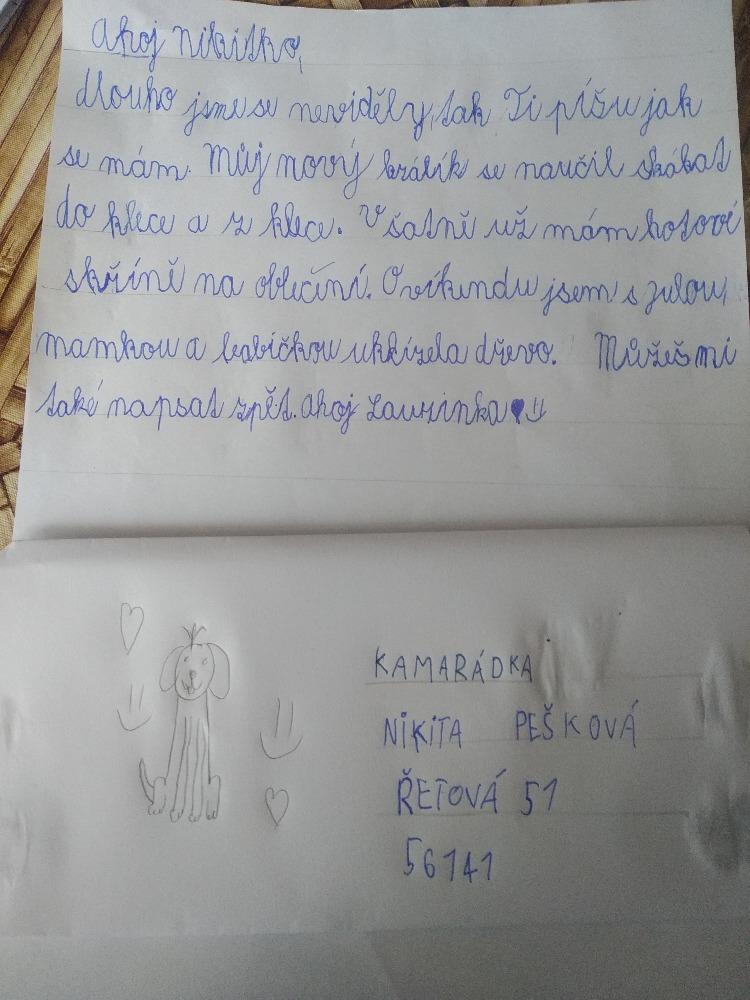 Ahoj Nikitko,
dlouho jsme se neviděly, tak Ti píšu jak
se mám. Můj nový králík se naučil skákat
do klece a z klece. V šatně už mám hotové
skříně na oblečíní. O víkendu jsem s julou,
mamkou a babičkou uklízela dřevo. Můžeš mi
také napsat zpět. Ahoj Laurinka
KAMARÁDKA
NIKITA PEŠKOVÁ
ŘETOVÁ 51
56141